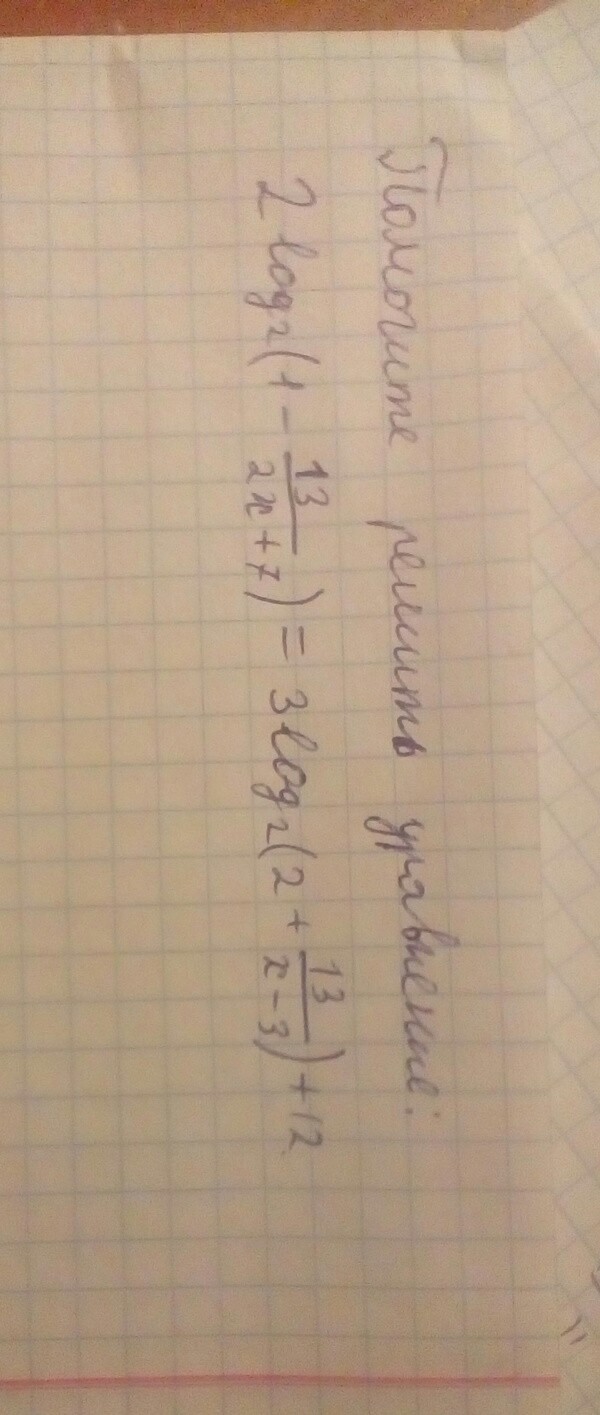 Помогите решить уравнение:
2 log₂(1 - 13/(2x+7)) = 3 log₂(2 + 13/(x-3)) + 12